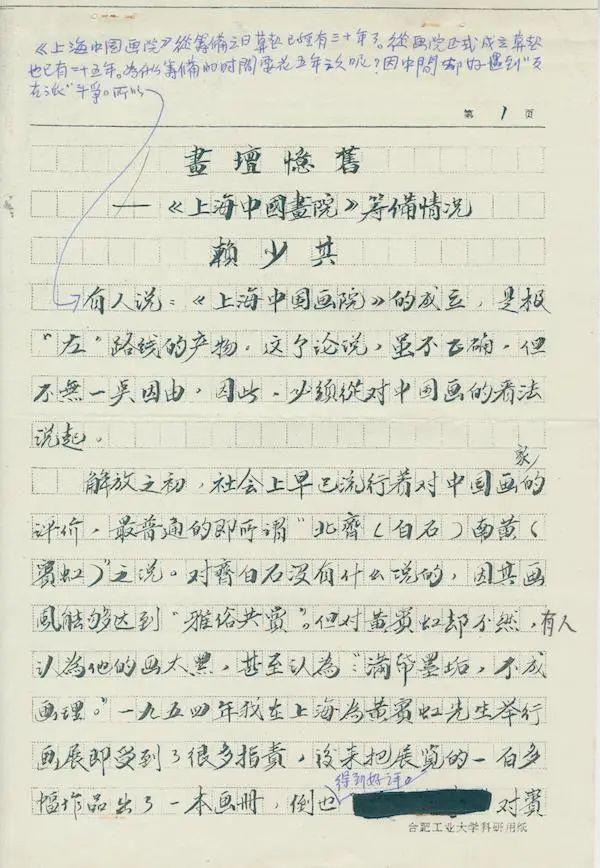 《上海中国画院》從筹備之日算起已經有三十年了。從画院正式成立算起
也已有二十五年。為什么筹備的时間要花五年之久呢？因中間却好遇到"反
右派"斗爭。所以
第 1 页
畫壇憶舊
——《上海中國畫院》筹備情况
賴少其
有人说：《上海中国画院》的成立，是极
"左"路线的产物。这个论说，虽不正确，但
不無一吴因由，因此，必须從对中国画的看法
说起。
解放之初，社会上早已流行着对中国画家的
评价，最普通的即所谓"北齊（白石）南黄（
賓虹）"之说。对齊白石没有什么说的，因其画
風能够达到"雅俗共賞"。但对黄賓虹却不然，有人
认為他的画太黑，甚至认為"满纸墨垢，不成
画理。"一九五四年我在上海為黄賓虹先生举行
画展即受到了很多指責，後来把展览的一百多
幅作品出了一本画册，倒也得到好评。对賓
合肥工业大学科研用纸